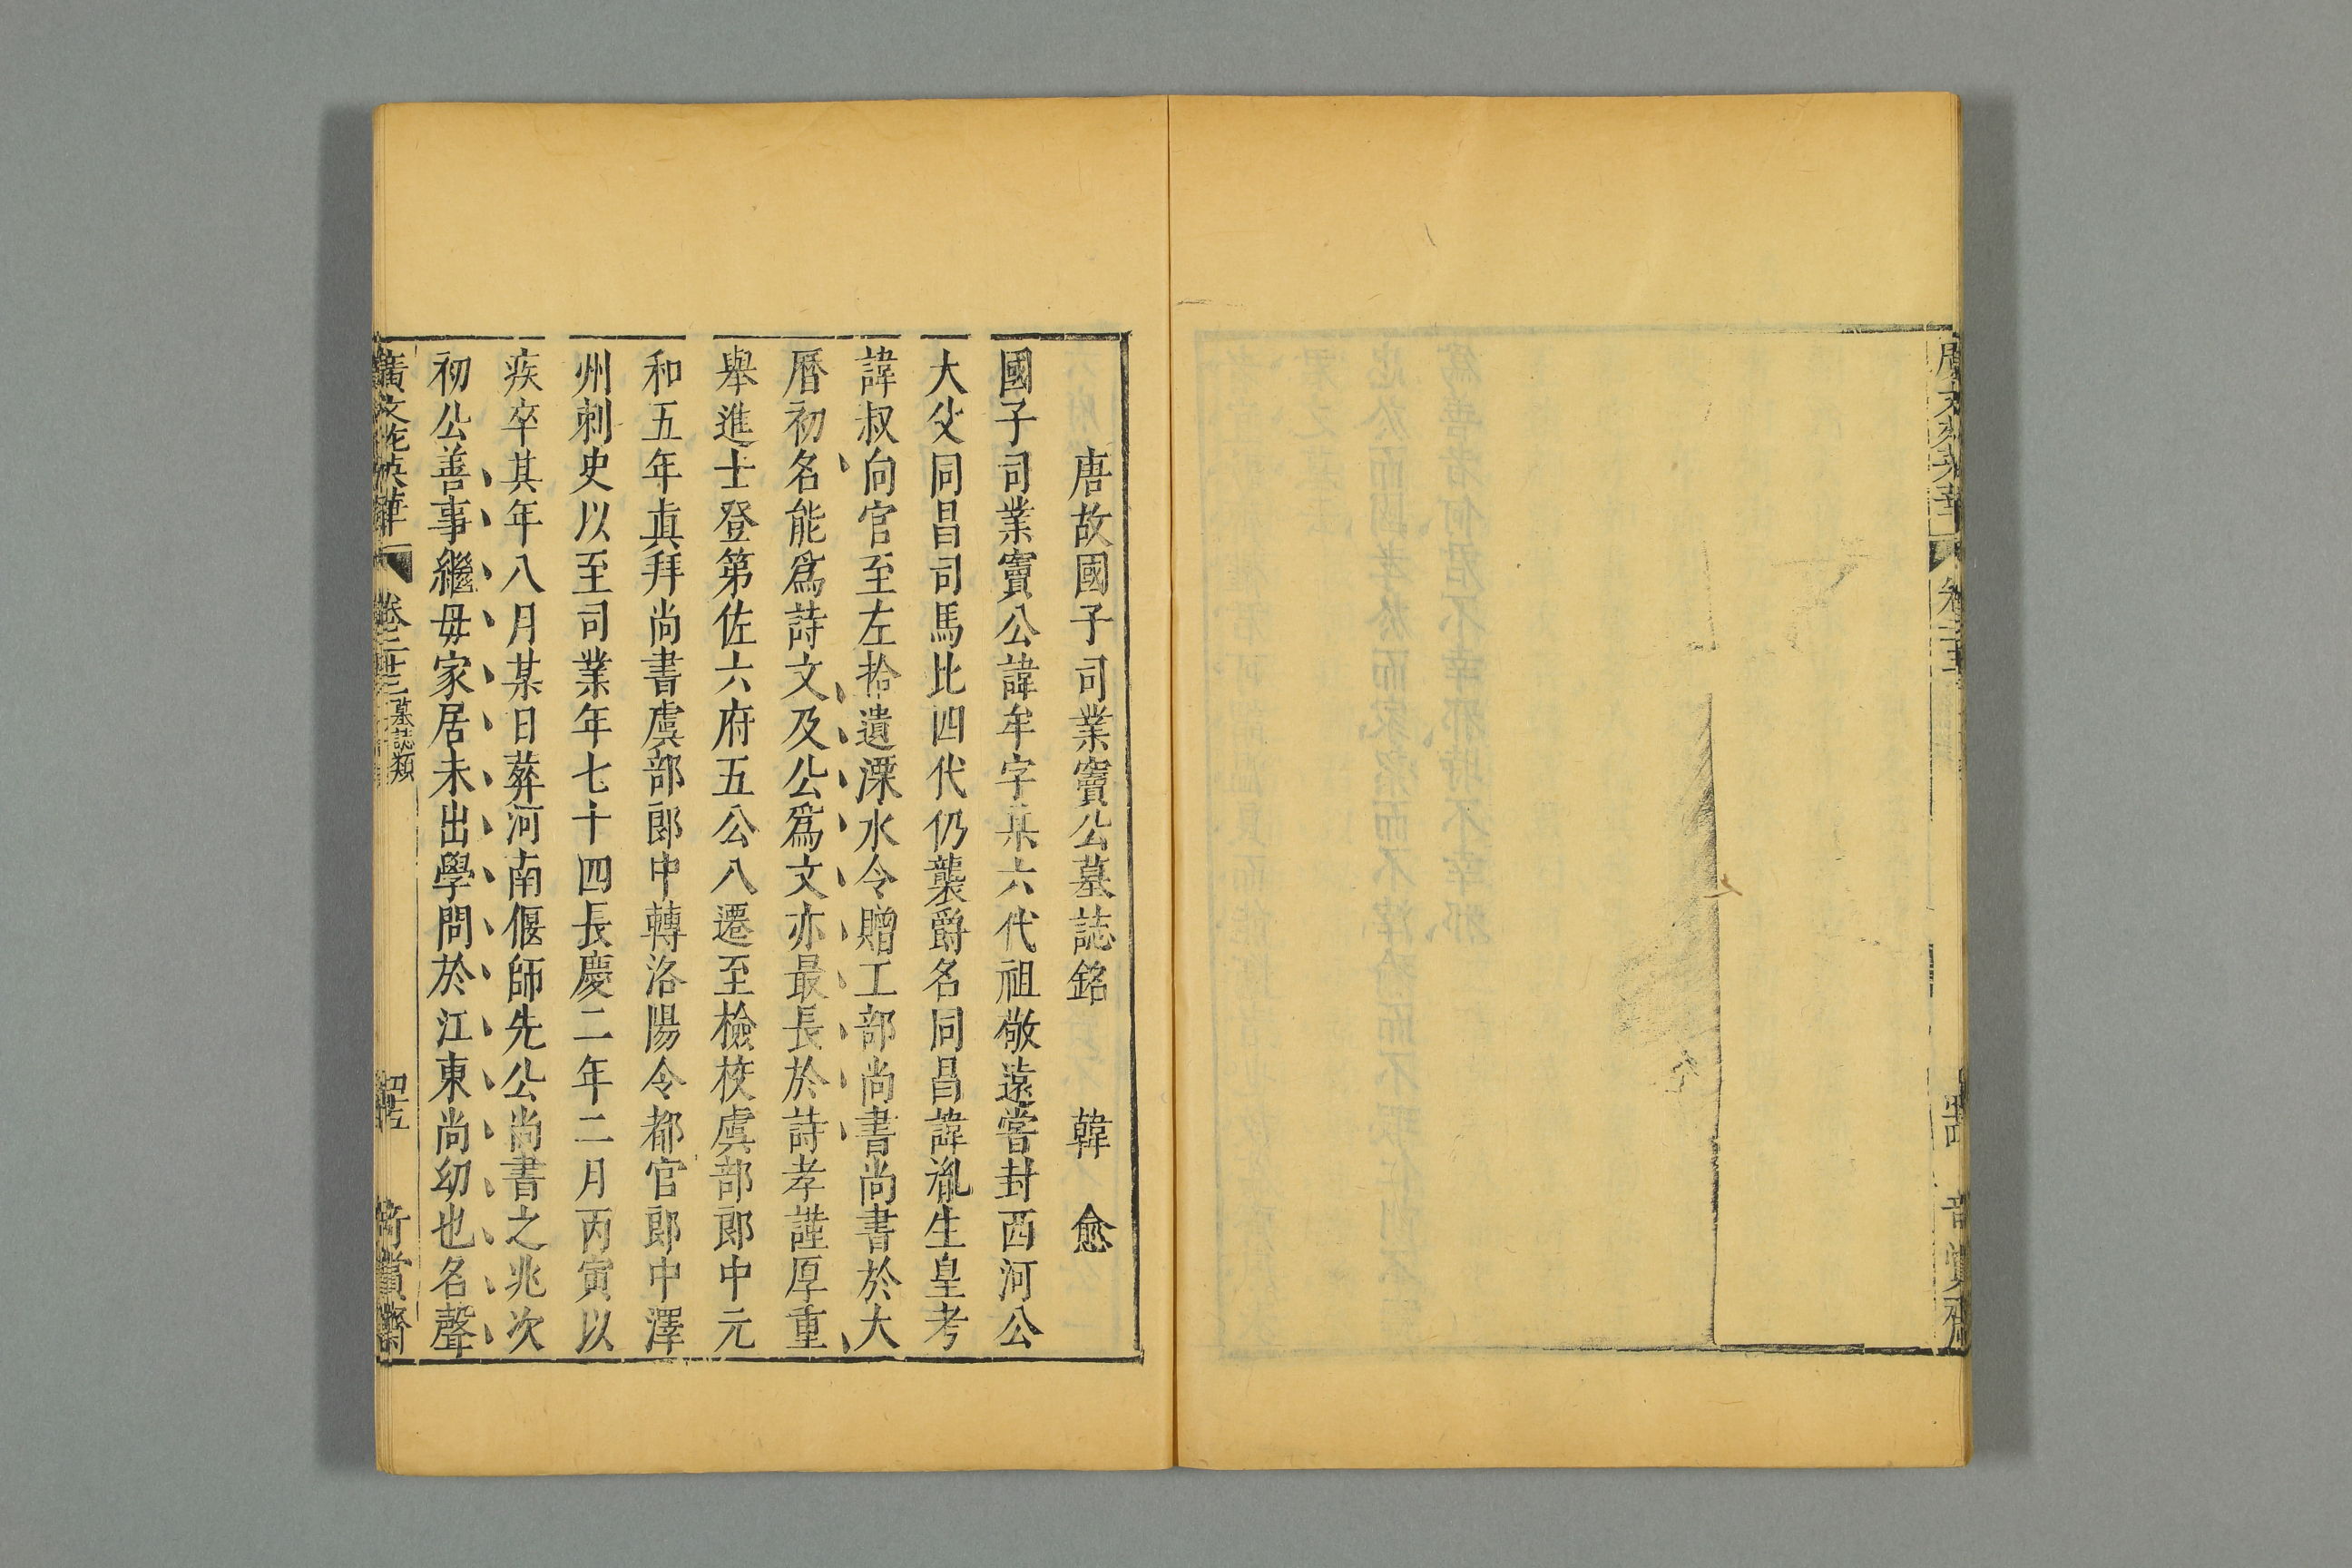 唐故國子司業竇公墓誌銘　韓愈
國子司業竇公諱牟字某六代祖敬遠嘗封西河公
大父同昌司馬比四代仍襲爵名同昌諱胤生皇考
諱叔向官至左拾遺溧水令贈工部尚書尚書於大
曆初名能爲詩文及公爲文亦最長於詩孝謹厚重
舉進士登第佐六府五公八遷至檢校虞部郎中元
和五年眞拜尚書虞部郎中轉洛陽令都官郎中澤
州刺史以至司業年七十四長慶二年二月丙寅以
疾卒其年八月某日葬河南偃師先公尚書之兆次
初公善事繼母家居未出學問於江東尚幼也名聲
廣文苑英華　卷二十三　墓誌類　奇賞齋